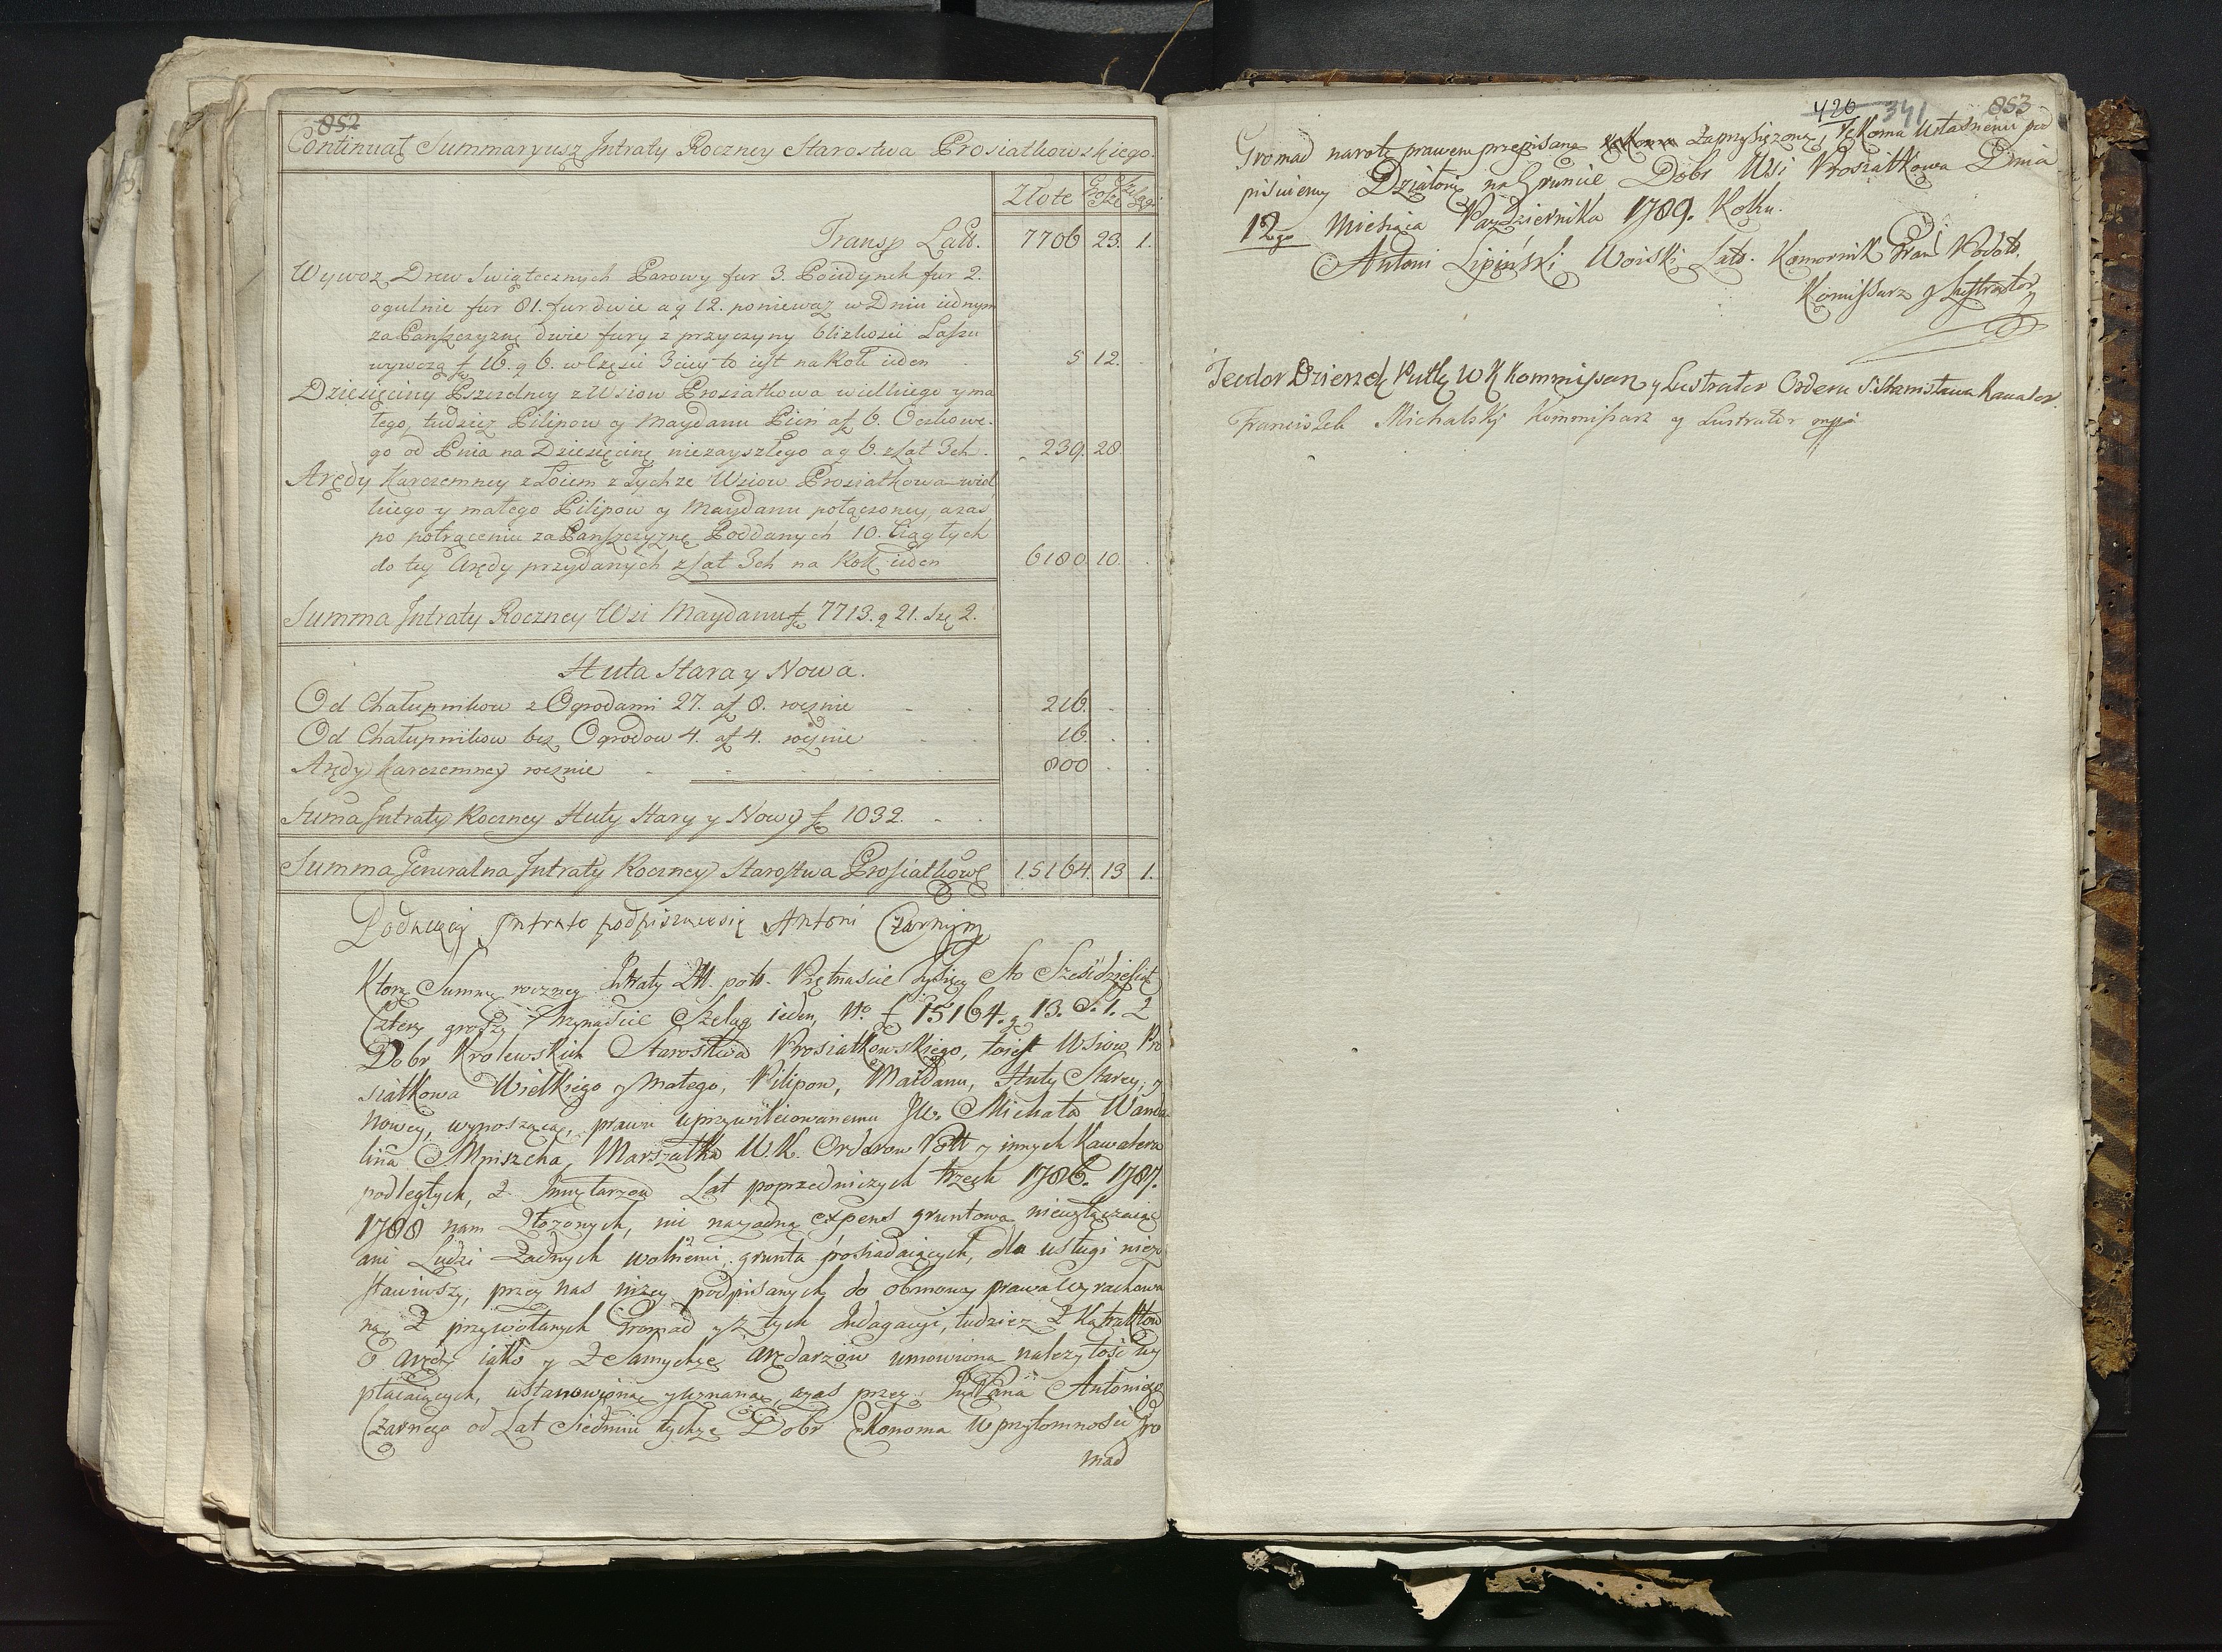 852
Continuat Summaryusz Intraty Roczney Starostwa Prosiatkowskiego.
Złote Grosze Szelągi
Transp Lath. 7706 23. 1.
Wywoz Drew Swiątecznych Parowy fur 3. Poiedynch fur 2.
ogulnie fur 81. fur dwie a g 12. poniewaz w Dniu iednym
za Panszczyznę dwie fury z przyczyny blizkosci Lassu
wywozą f 16. g 6. w częsci 3ciey to iest na Rok ieden 5 12.
Dziesięciny Pszczelney z Wsiow Prosiatkowa wielkiego y ma
łego, tudzież Pilipow y Maydanu Pień a f 6. Oczkowe-
go od Pnia na Dziesięcinę niezayszłego a g 6. z Lat 3ch. 239. 28.
Arędy Karczemney z Łoiem z Tychze Wsiow Prosiatkowa wiel
kiego y małego Pilipow y Maydanu połączoney, a zas
po potrąceniu za Panszczyznę Poddanych 10. Ciągłych
do tey Arędy przydanych z Lat 3ch na Rok ieden 6180. 10.
Summa Intraty Roczney Wsi Maydanu f 7713. g 21. Szę 2.
Huta Stara y Nowa.
Od Chałupnikow z Ogrodami 27. a f 8. rocznie 216.
Od Chałupnikow bez Ogrodow 4. a f 4. rocznie 16.
Arędy Karczemney rocznie 800
Suma Intraty Roczney Huty Stary y Nowy f 1032.
Summa Generalna Intraty Roczney Starostwa Prosiatkows 15164. 13 1.
Podaiący Intratę podpisuie się Antoni Czarny
Ktorą Summę roczney Intraty Złł. pols. Piętnascie Tysięcy Sto Szescdziesiąt
Cztery groszy Trzynascie Szeląg ieden, No. f 15164. g 13. S. 1. Z
Dobr Krolewskich Starostwa Prosiatkowskiego, toiest Wsiow Pro
siatkowa Wielkiego y Małego, Pilipow, Maidanu, Huty Starey, y
Nowey, wynoszącą, prawu uprzywileiowanemu JW. Michała Wanda
lina Mniszcha, Marszałka W. K. Orderow Polł y innych Kawalera
podległych, z Inwętarzow Lat poprzedniczych trzech 1786. 1787.
1788 nam złożonych, nic na żadną expens gruntową niewyłączaiąc
ani Ludzi Żadnych wolnemi, grunta posiadaiących, dla usługi niezo
stawiwszy, przez nas niżey podpisanych do obmowy prawa wyrachowa
ną, Z przywołanych Gromad y z tych Indagacyi, tudziez z Kątraktow
o Arędy iako y z samychże Arędarzow umowioną należytość tey
płacaiących, ustanowioną y uznaną, a zas przez Im Pana Antoniego
Czarnego od Lat Siedmiu tychże Dobr Ekonoma w przytomności Gro
mad
420 341 853
Gromad na rotę prawem przepisaną Zaprzysiężoną, Ręką Własnemi pod
pisuiemy Działo się na Gruncie Dobr Wsi Prosiatkowa Dnia
12go Miesiąca Pazdziernika 1789. Roku.
Antoni Lipiński Woiski Lats. Komornik Gran Podols.
Komissarz y Lustrator
Teodor Dzierzek Putk W K Kommissarz y Lustrator Orderu S. Stanisława Kawaler.
Franciszek Michalski Kommissarz y Lustrator mpp